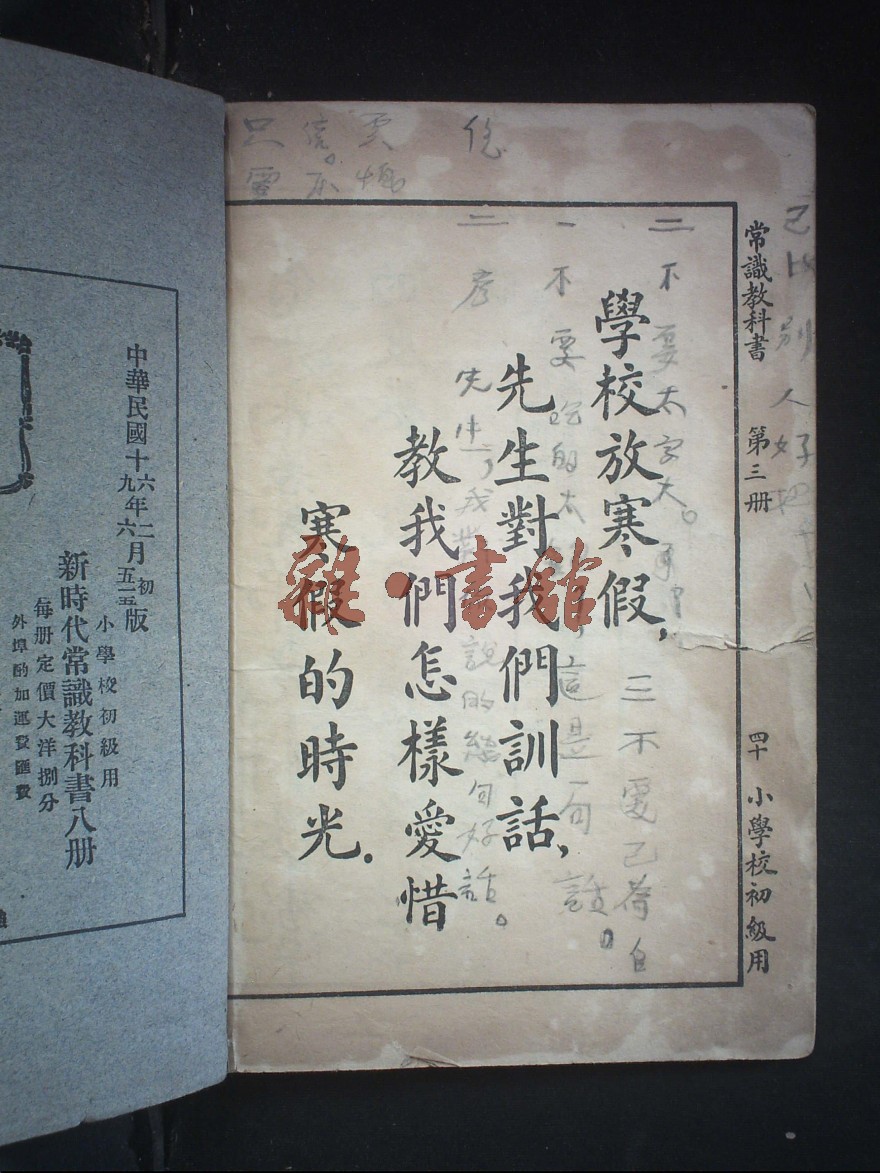 常識教科書　第三册　四十　小學校初級用
學校放寒假，
先生對我們訓話，
教我們怎樣愛惜
寒假的時光．
己比別人好
二不要太
三不要
一不要
的太
這是一句話。
先生
我
說的
句好話。
信
只要
雜·書館
中華民國十六年二月初版
十九年六月一五五版
小學校初級用
新時代常識教科書八册
每册定價大洋捌分
外埠酌加運費匯費